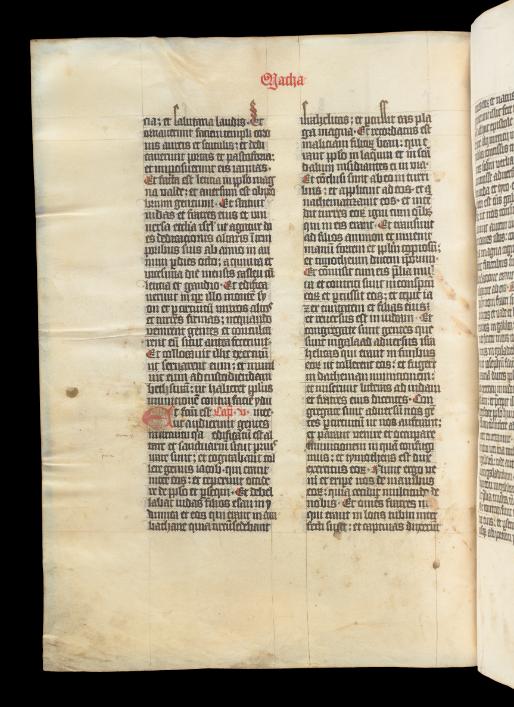 Macha
cia: et salutaria laudis. Et
ornaverunt faciem templi coro
nis aureis et scutulis: et dedi
caverunt portas et pastoforia:
et imposuerunt eis ianuas.
Et facta est leticia in ipso mag
na valde: et aversum est obpro
brium gentium. Et statuit
iudas et fratres eius et uni
versa ecclia isrl ut agatur di
es dedicationis altaris in tem
poribus suis ab anno in an
num p dies octo: a quinta et
vicesima die mensis casleu cu
leticia et gaudio. Et edifica
verunt in tpr illo monte sy
on et p circuitu muros altos
et turres firmas: nequando
venirent gentes et conculca
rent eu sicut antea fecerunt.
Et collocavit illic exercitu
ut servarent eum: et muni
vit eum ad custodiendam
bethsura: ut haberet plus
munitione contra facie ydu
Et factu est Cap. v. mee
ut audierunt gentes
in circuitu qa edificatu est al
tare et sanctuariu sicut prius
irate sunt: et cogitabant tol
lere genus iacob qui erant
inter eos: et ceperunt occide
re de pplo et psequi. Et debel
labat iudas filios esau in y
dumea et eos qui erant in acra
bathane quia circusedebant
israhelitas: et percussit eos pla
ga magna. Et recordatus est
maliciam filior bean: qui e
rant pplo in laqueu et in scan
dalum insidiantes ei in via.
Et coclusi sunt ab eo in turri
bus: et applicuit ad eos et a
nathematizavit eos et ince
dit turres eor igni cum oib
qui in eis erant. Et transivit
ad filios ammon et invenit
manu fortem et pplm copiosu:
et thymotheum ducem ipsorum.
Et comisit cum eis plia mul
ta et contriti sunt in conspectu
eor et percussit eos: et cepit ia
zer civitatem et filias eius:
et reversus est in iudeam. Et
congregate sunt gentes que
sunt in galaad adversus isra
helitas qui erant in finibus
eor ut tollerent eos: et fugerut
in datheman munitionem:
et miserunt litteras ad iudam
et fratres eius dicentes. Con
gregate sunt adversu nos ge
tes p circuitu ut nos auferant:
et parant venire et occupare
munitionem in qua confugi
mus: et tymotheus est dux
exercitus eor. Nunc ergo ve
ni et eripe nos de manibus
eor: quia cecidit multitudo de
nobis. Et omes fratres nri
qui erant in locis tubin inter
fecti sunt: et captivas duxerut